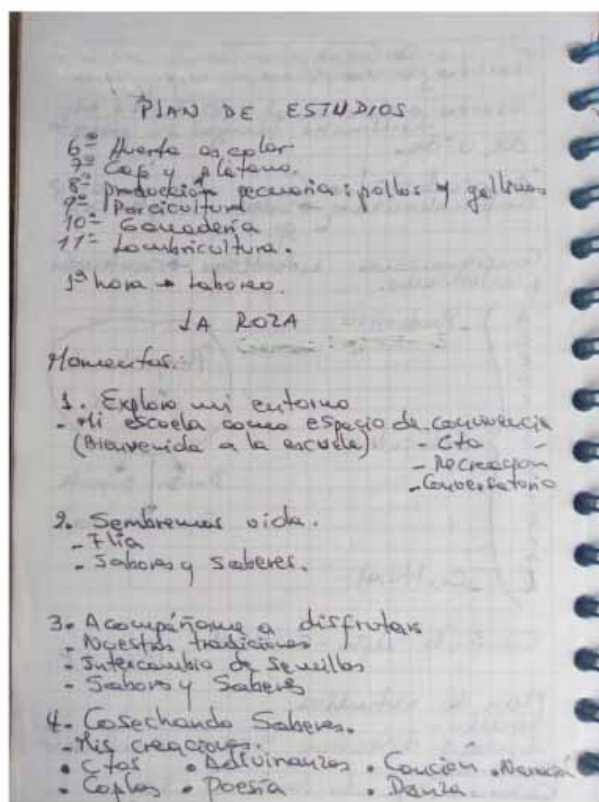 PLAN DE ESTUDIOS
6º Huerta escolar
7º Café y plátano.
8º Producción pecuaria: pollos y gallinas
9º Porcicultura
10º Ganadería
11º Lombricultura.
1ª hora → laboreo.
LA ROZA
Momentos.
1. Exploro mi entorno
- Mi escuela como espacio de convivencia
(Bienvenida a la escuela) - Cto
- Recreación
- Conversatorio
2. Sembremos vida.
- Flia
- Sabores y saberes.
3. Acompáñame a disfrutar
- Nuestras tradiciones
- Intercambio de semillas
- Sabores y Saberes
4. Cosechando Saberes.
- Mis creaciones.
• Ctos • Adivinanzas • Canción • Narración
• Coplas • Poesía • Danza